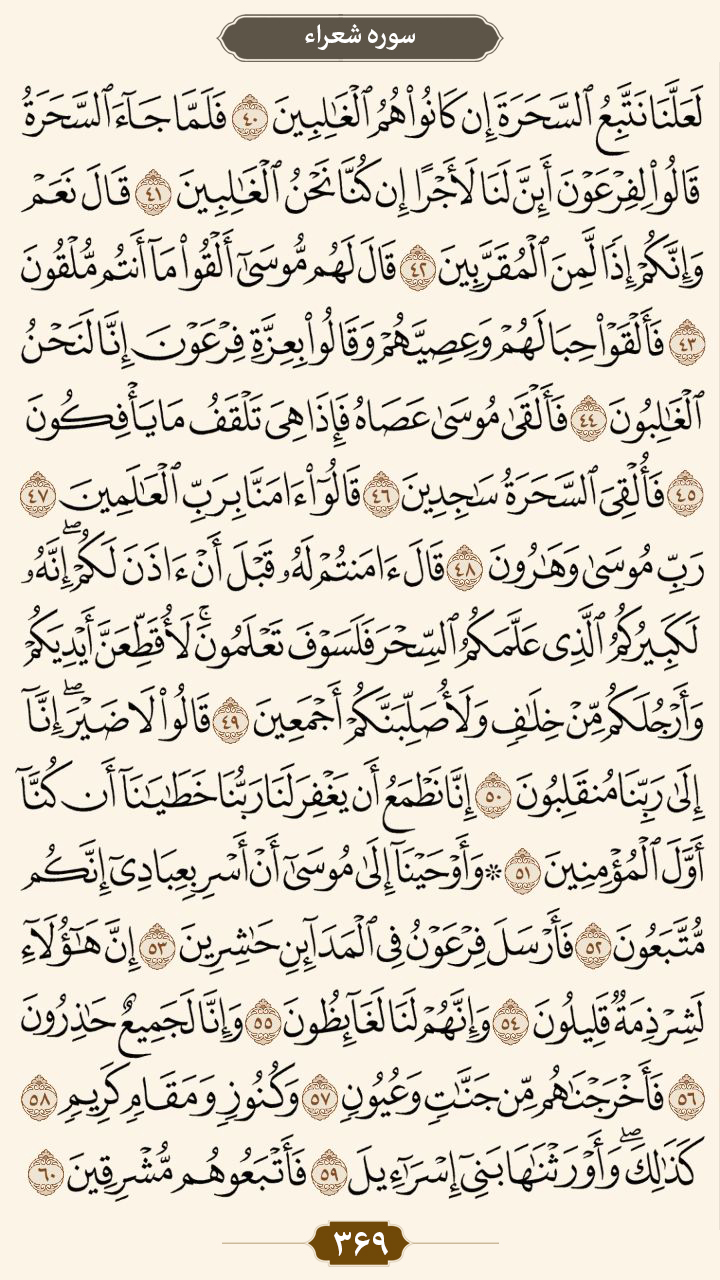 سوره شعراء
لَعَلَّنَا نَتَّبِعُ ٱلسَّحَرَةَ إِن كَانُوا۟ هُمُ ٱلْغَـٰلِبِينَ ٤٠ فَلَمَّا جَآءَ ٱلسَّحَرَةُ
قَالُوا۟ لِفِرْعَوْنَ أَئِنَّ لَنَا لَأَجْرًا إِن كُنَّا نَحْنُ ٱلْغَـٰلِبِينَ ٤١ قَالَ نَعَمْ
وَإِنَّكُمْ إِذًا لَّمِنَ ٱلْمُقَرَّبِينَ ٤٢ قَالَ لَهُم مُّوسَىٰٓ أَلْقُوا۟ مَآ أَنتُم مُّلْقُونَ
٤٣ فَأَلْقَوْا۟ حِبَالَهُمْ وَعِصِيَّهُمْ وَقَالُوا۟ بِعِزَّةِ فِرْعَوْنَ إِنَّا لَنَحْنُ
ٱلْغَـٰلِبُونَ ٤٤ فَأَلْقَىٰ مُوسَىٰ عَصَاهُ فَإِذَا هِىَ تَلْقَفُ مَا يَأْفِكُونَ
٤٥ فَأُلْقِىَ ٱلسَّحَرَةُ سَـٰجِدِينَ ٤٦ قَالُوٓا۟ ءَامَنَّا بِرَبِّ ٱلْعَـٰلَمِينَ ٤٧
رَبِّ مُوسَىٰ وَهَـٰرُونَ ٤٨ قَالَ ءَامَنتُمْ لَهُۥ قَبْلَ أَنْ ءَاذَنَ لَكُمْ ۖ إِنَّهُۥ
لَكَبِيرُكُمُ ٱلَّذِى عَلَّمَكُمُ ٱلسِّحْرَ فَلَسَوْفَ تَعْلَمُونَ ۚ لَأُقَطِّعَنَّ أَيْدِيَكُمْ
وَأَرْجُلَكُم مِّنْ خِلَـٰفٍ وَلَأُصَلِّبَنَّكُمْ أَجْمَعِينَ ٤٩ قَالُوا۟ لَا ضَيْرَ ۖ إِنَّآ
إِلَىٰ رَبِّنَا مُنقَلِبُونَ ٥٠ إِنَّا نَطْمَعُ أَن يَغْفِرَ لَنَا رَبُّنَا خَطَـٰيَـٰنَآ أَن كُنَّآ
أَوَّلَ ٱلْمُؤْمِنِينَ ٥١ * وَأَوْحَيْنَآ إِلَىٰ مُوسَىٰٓ أَنْ أَسْرِ بِعِبَادِىٓ إِنَّكُم
مُّتَّبَعُونَ ٥٢ فَأَرْسَلَ فِرْعَوْنُ فِى ٱلْمَدَآئِنِ حَـٰشِرِينَ ٥٣ إِنَّ هَـٰٓؤُلَآءِ
لَشِرْذِمَةٌ قَلِيلُونَ ٥٤ وَإِنَّهُمْ لَنَا لَغَآئِظُونَ ٥٥ وَإِنَّا لَجَمِيعٌ حَـٰذِرُونَ
٥٦ فَأَخْرَجْنَـٰهُم مِّن جَنَّـٰتٍ وَعُيُونٍ ٥٧ وَكُنُوزٍ وَمَقَامٍ كَرِيمٍ ٥٨
كَذَٰلِكَ ۖ وَأَوْرَثْنَـٰهَا بَنِىٓ إِسْرَٰٓءِيلَ ٥٩ فَأَتْبَعُوهُم مُّشْرِقِينَ ٦٠
۳۶۹